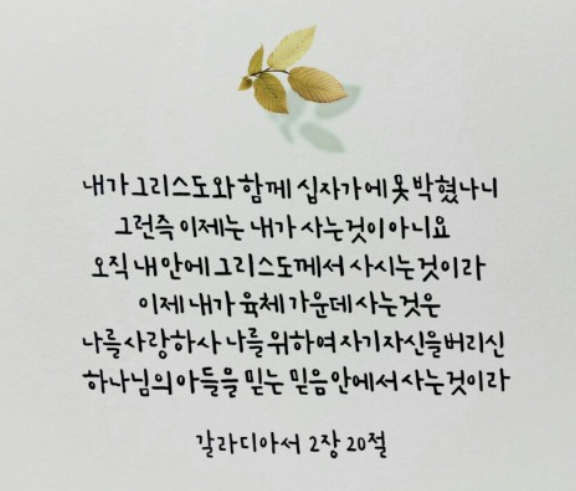 내가 그리스도와 함께 십자가에 못 박혔나니
그런즉 이제는 내가 사는것이 아니요
오직 내 안에 그리스도께서 사시는것이라
이제 내가 육체 가운데 사는것은
나를 사랑하사 나를 위하여 자기자신을 버리신
하나님의 아들을 믿는 믿음 안에서 사는것이라
갈라디아서 2장 20절